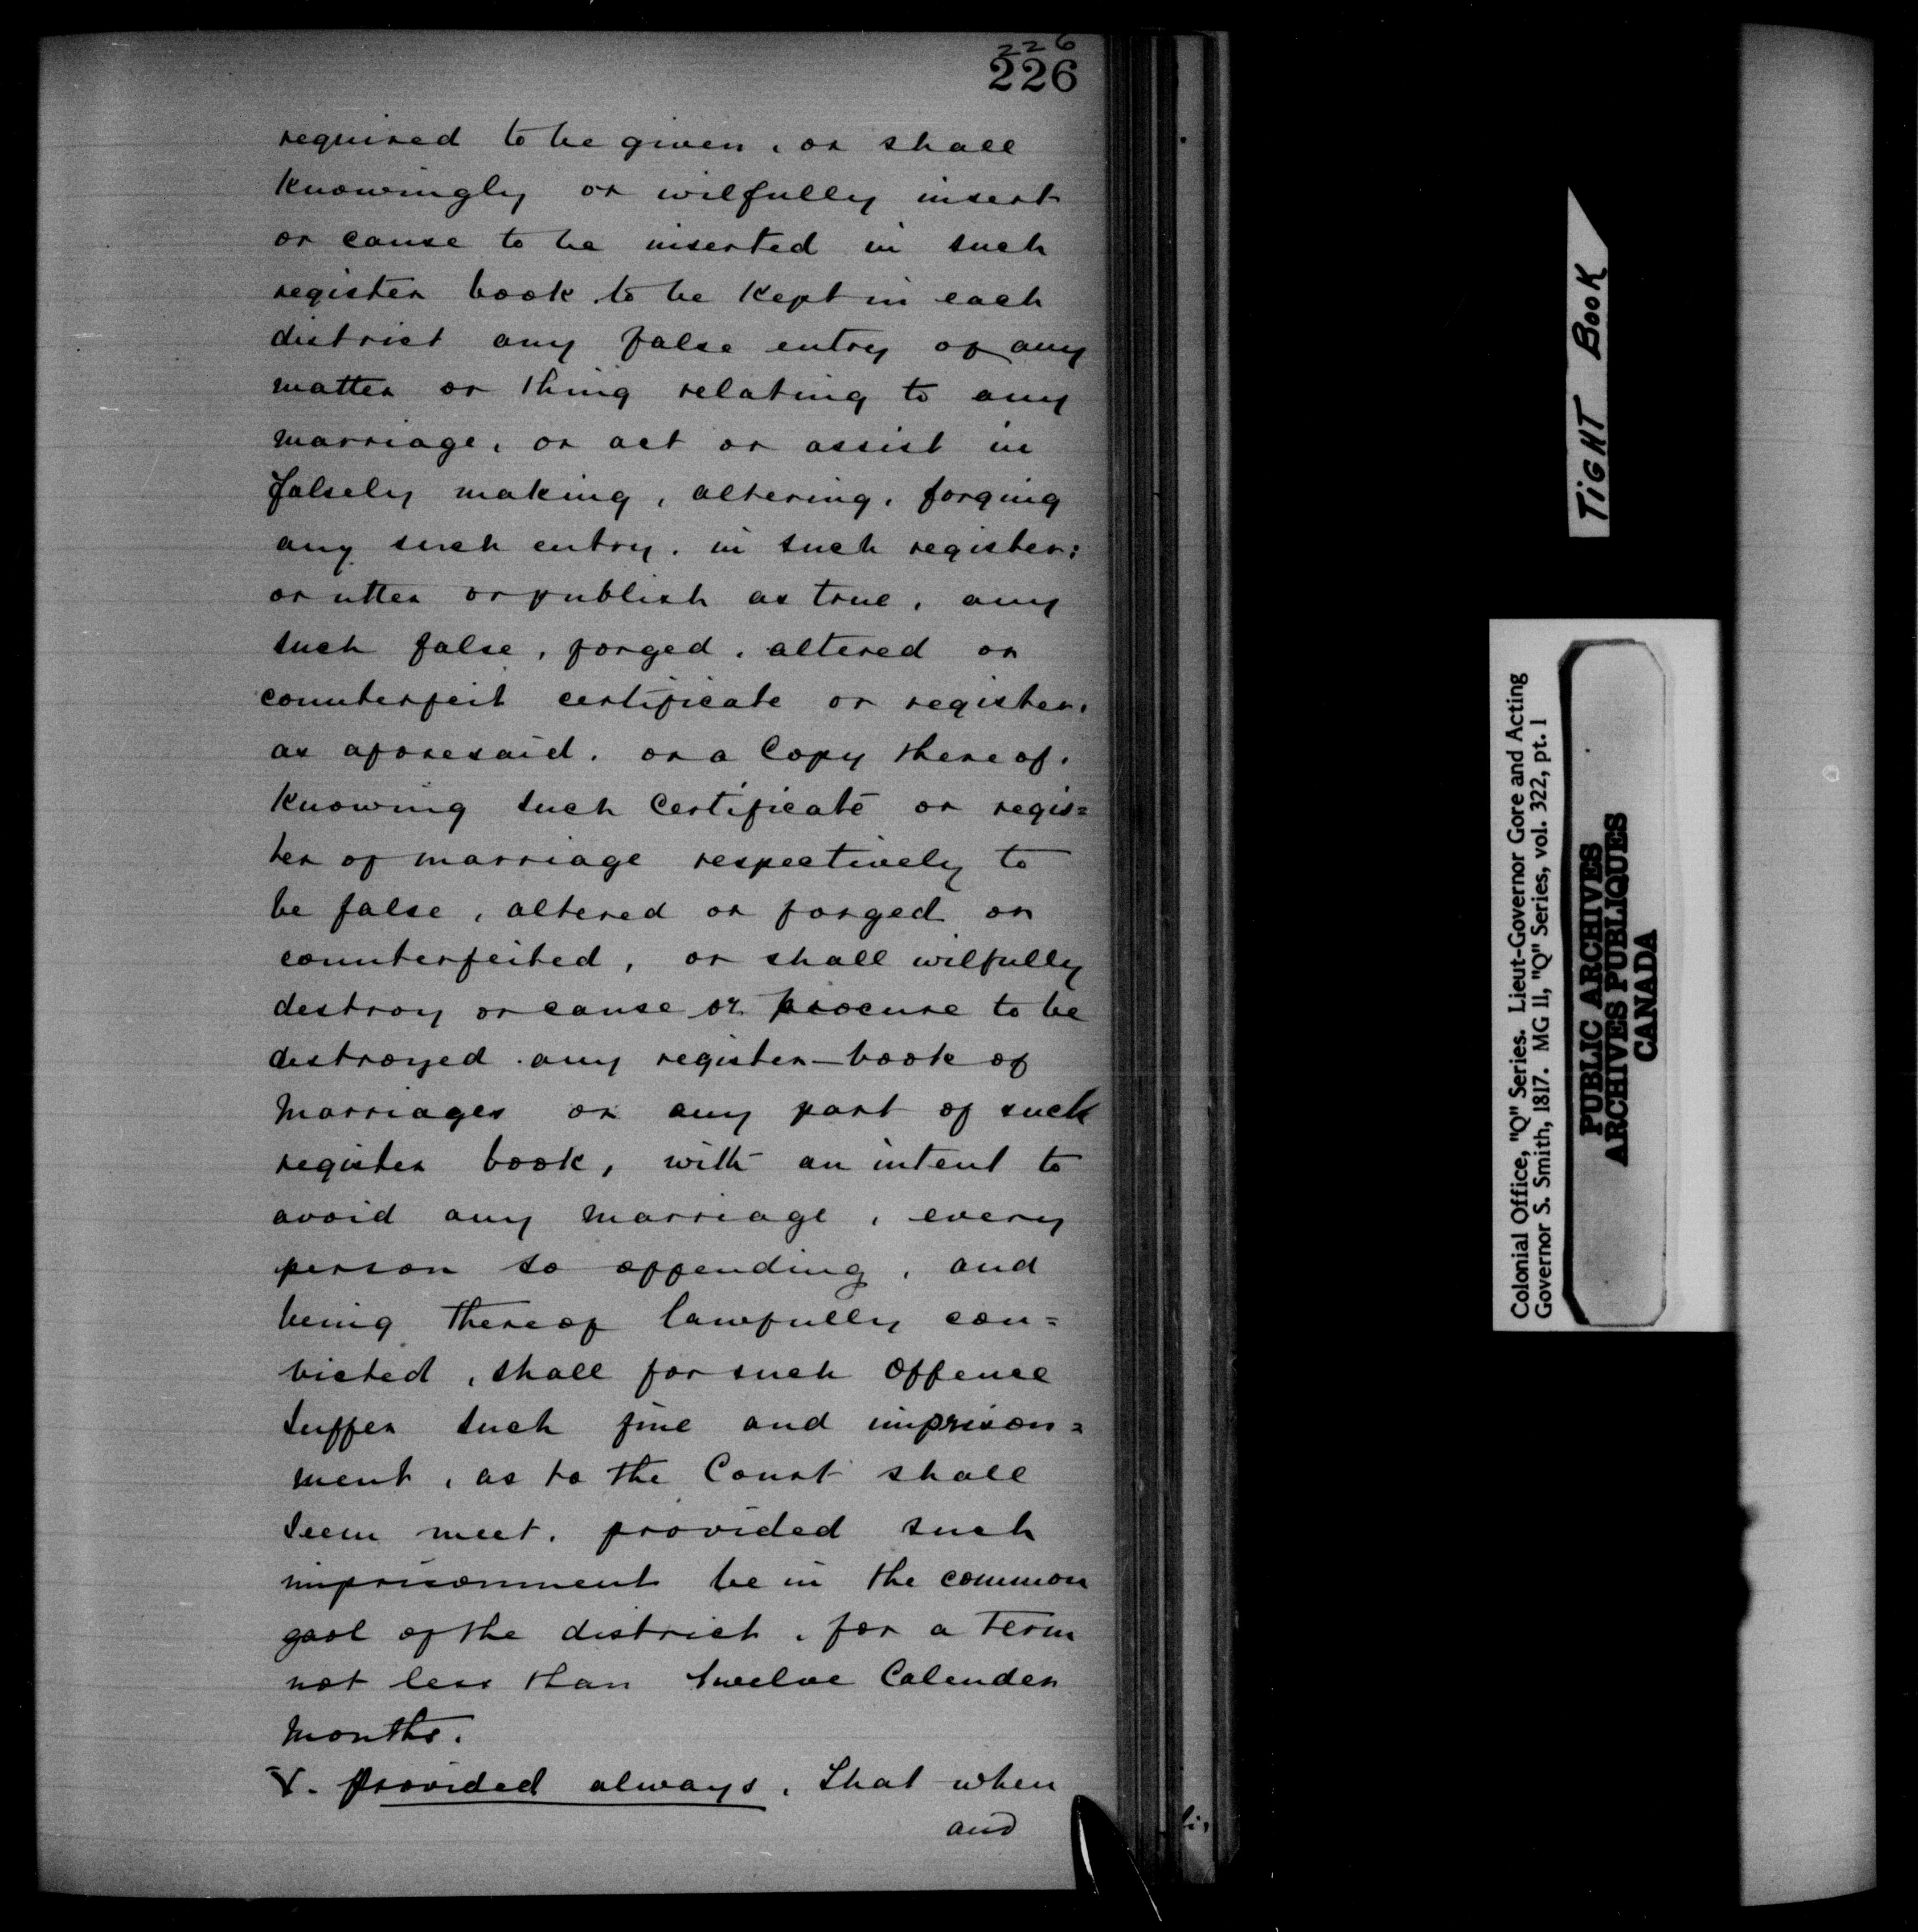 226
226
required to be given, or shall
knowingly or wilfully insert
or cause to be inserted in such
register book to be kept in each
district any false entry of any
matter or thing relating to any
marriage, or act or assist in
falsely making, altering, forging
any such entry, in such register:
or utter or publish as true, any
such false, forged, altered or
counterfeit certificate or register,
as aforesaid, or a Copy thereof,
knowing such Certificate or regis=
ter of marriage respectively to
be false, altered or forged or
counterfeited, or shall wilfully
destroy or cause or procure to be
destroyed any register-book of
Marriages or any part of such
register book, with an intent to
avoid any Marriage, every
person so offending, and
being thereof lawfully con=
victed, shall for such Offence
suffer such fine and imprison=
ment, as to the Court shall
seem meet, provided such
imprisonment be in the common
gaol of the district, for a term
not less than twelve Calender
Months.
V. Provided always, That when
and
TIGHT BOOK
Colonial Office, "Q" Series. Lieut-Governor Gore and Acting
Governor S. Smith, 1817. MG 11, "Q" Series, vol. 322, pt. 1
PUBLIC ARCHIVES
ARCHIVES PUBLIQUES
CANADA